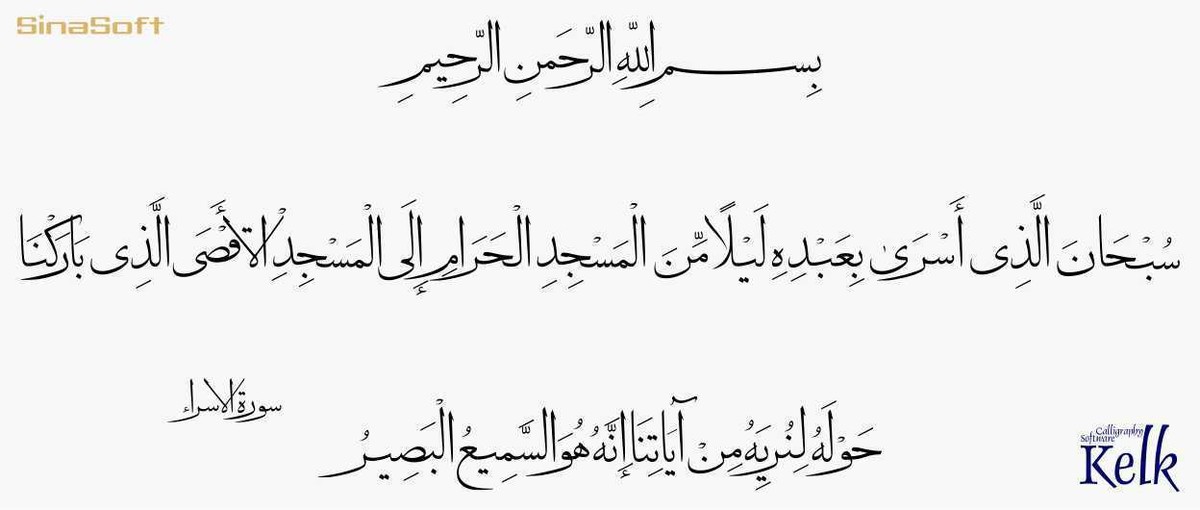 SinaSoft
بِسمِ اللّٰهِ الرَّحمَنِ الرَّحِيمِ
سُبْحَانَ الَّذِى أَسْرَىٰ بِعَبْدِهِ لَيْلًا مِّنَ الْمَسْجِدِ الْحَرَامِ إِلَى الْمَسْجِدِ الْأَقْصَى الَّذِى بَارَكْنَا
حَوْلَهُ لِنُرِيَهُ مِنْ آيَاتِنَا إِنَّهُ هُوَ السَّمِيعُ الْبَصِيرُ
سورة الاسراء
Calligraphy
Software
Kelk